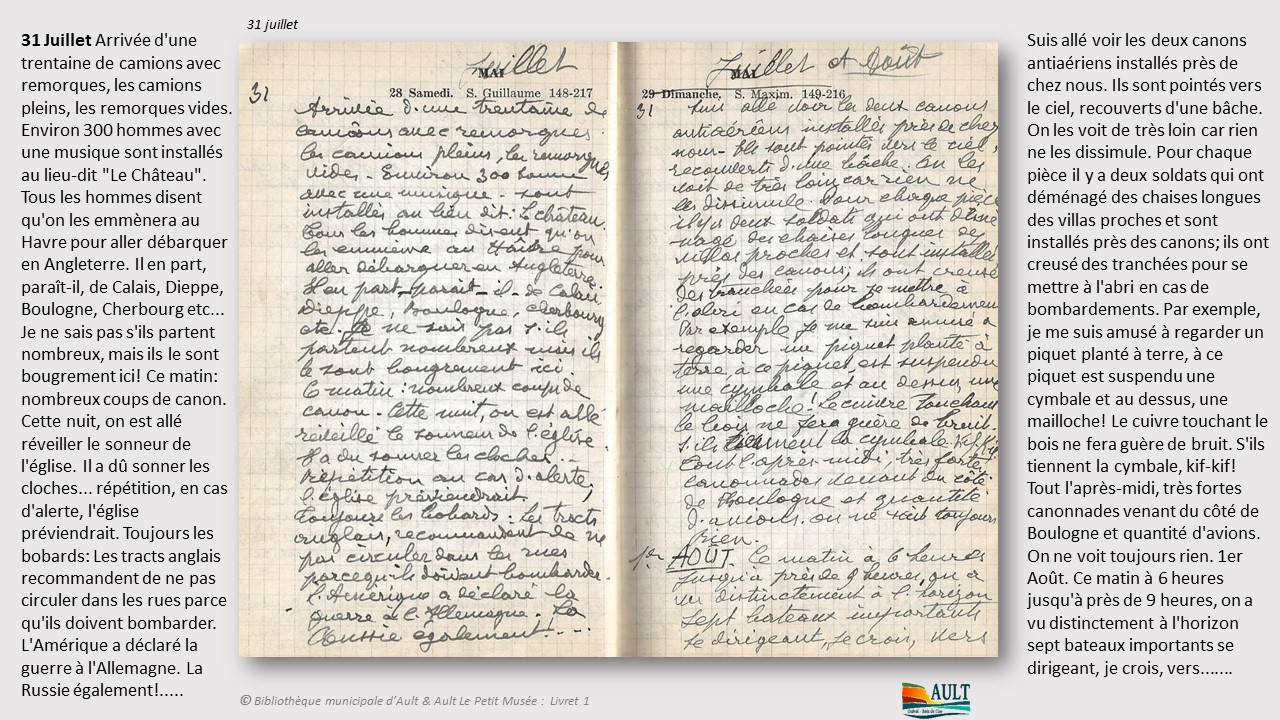 31 juillet
31 Juillet Arrivée d'une
trentaine de camions avec
remorques, les camions
pleins, les remorques vides.
Environ 300 hommes avec
une musique sont installés
au lieu-dit "Le Château".
Tous les hommes disent
qu'on les emmènera au
Havre pour aller débarquer
en Angleterre. Il en part,
paraît-il, de Calais, Dieppe,
Boulogne, Cherbourg etc...
Je ne sais pas s'ils partent
nombreux, mais ils le sont
bougrement ici! Ce matin:
nombreux coups de canon.
Cette nuit, on est allé
réveiller le sonneur de
l'église. Il a dû sonner les
cloches... répétition, en cas
d'alerte, l'église
préviendrait. Toujours les
bobards: Les tracts anglais
recommandent de ne pas
circuler dans les rues parce
qu'ils doivent bombarder.
L'Amérique a déclaré la
guerre à l'Allemagne. La
Russie également!.....
Juillet
MAI
28 Samedi. S. Guillaume 148-217
31
Arrivée d'une trentaine de
camions avec remorques
les camions pleins, les remorques
vides - Environ 300 homme
avec une musique - sont
installés au lieu dit: Le château.
Tous les hommes disent qu'on
les emmène au Hâvre pour
aller débarquer en Angleterre.
Il en part - parait - il - de Calais,
Dieppe, Boulogne, Cherbourg
etc. Je ne sais pas s'ils
partent nombreux mais ils
le sont bougrement ici.
Ce matin: nombreux coups de
canon. Cette nuit, on est allé
réveillé le sonneur de l'église.
Il a du sonner les cloches...
Répétition au cas d'alerte,
l'église préviendrait.
Toujours les bobards: Les tracts
anglais, recommandent de ne
pas circuler dans les rues
parcequ'ils doivent bombarder.
l'Amérique a déclaré la
guerre à l'Allemagne. La
Russie également!....
Juillet et Août
MAI
29 Dimanche. S. Maxim. 149-216
31
Suis allé voir les deux canons
antiaériens installés près de chez
nous - Ils sont pointés vers le ciel,
recouverts d'une bâche. On les
voit de très loin car rien ne
les dissimule. Pour chaque pièce
il y a deux soldats qui ont démé
nagé des chaises longues des
villas proches et sont installés
près des canons; ils ont creusé
des tranchées pour se mettre à
l'abri en cas de bombardement
Par exemple, je me suis amusé à
regarder un piquet planté à
terre à ce piquet est suspendu
une cymbale et au dessus, une
mailloche! Le cuivre touchant
le bois ne fera guère de bruit.
S'ils tiennent la cymbale Kif-Kif
Tout l'après-midi, très fortes
canonnades venant du côté
de Boulogne et quantité
d'avions. On ne voit toujours
rien.
1er AOÛT. Ce matin à 6 heures
jusqu'à près de 9 heures, on a
vu distinctement à l'horizon
sept bateaux importants
se dirigeant, je crois, vers
Suis allé voir les deux canons
antiaériens installés près de
chez nous. Ils sont pointés vers
le ciel, recouverts d'une bâche.
On les voit de très loin car rien
ne les dissimule. Pour chaque
pièce il y a deux soldats qui ont
déménagé des chaises longues
des villas proches et sont
installés près des canons; ils ont
creusé des tranchées pour se
mettre à l'abri en cas de
bombardements. Par exemple,
je me suis amusé à regarder un
piquet planté à terre, à ce
piquet est suspendu une
cymbale et au dessus, une
mailloche! Le cuivre touchant le
bois ne fera guère de bruit. S'ils
tiennent la cymbale, kif-kif!
Tout l'après-midi, très fortes
canonnades venant du côté de
Boulogne et quantité d'avions.
On ne voit toujours rien. 1er
Août. Ce matin à 6 heures
jusqu'à près de 9 heures, on a
vu distinctement à l'horizon
sept bateaux importants se
dirigeant, je crois, vers.......
© Bibliothèque municipale d'Ault & Ault Le Petit Musée : Livret 1
AULT